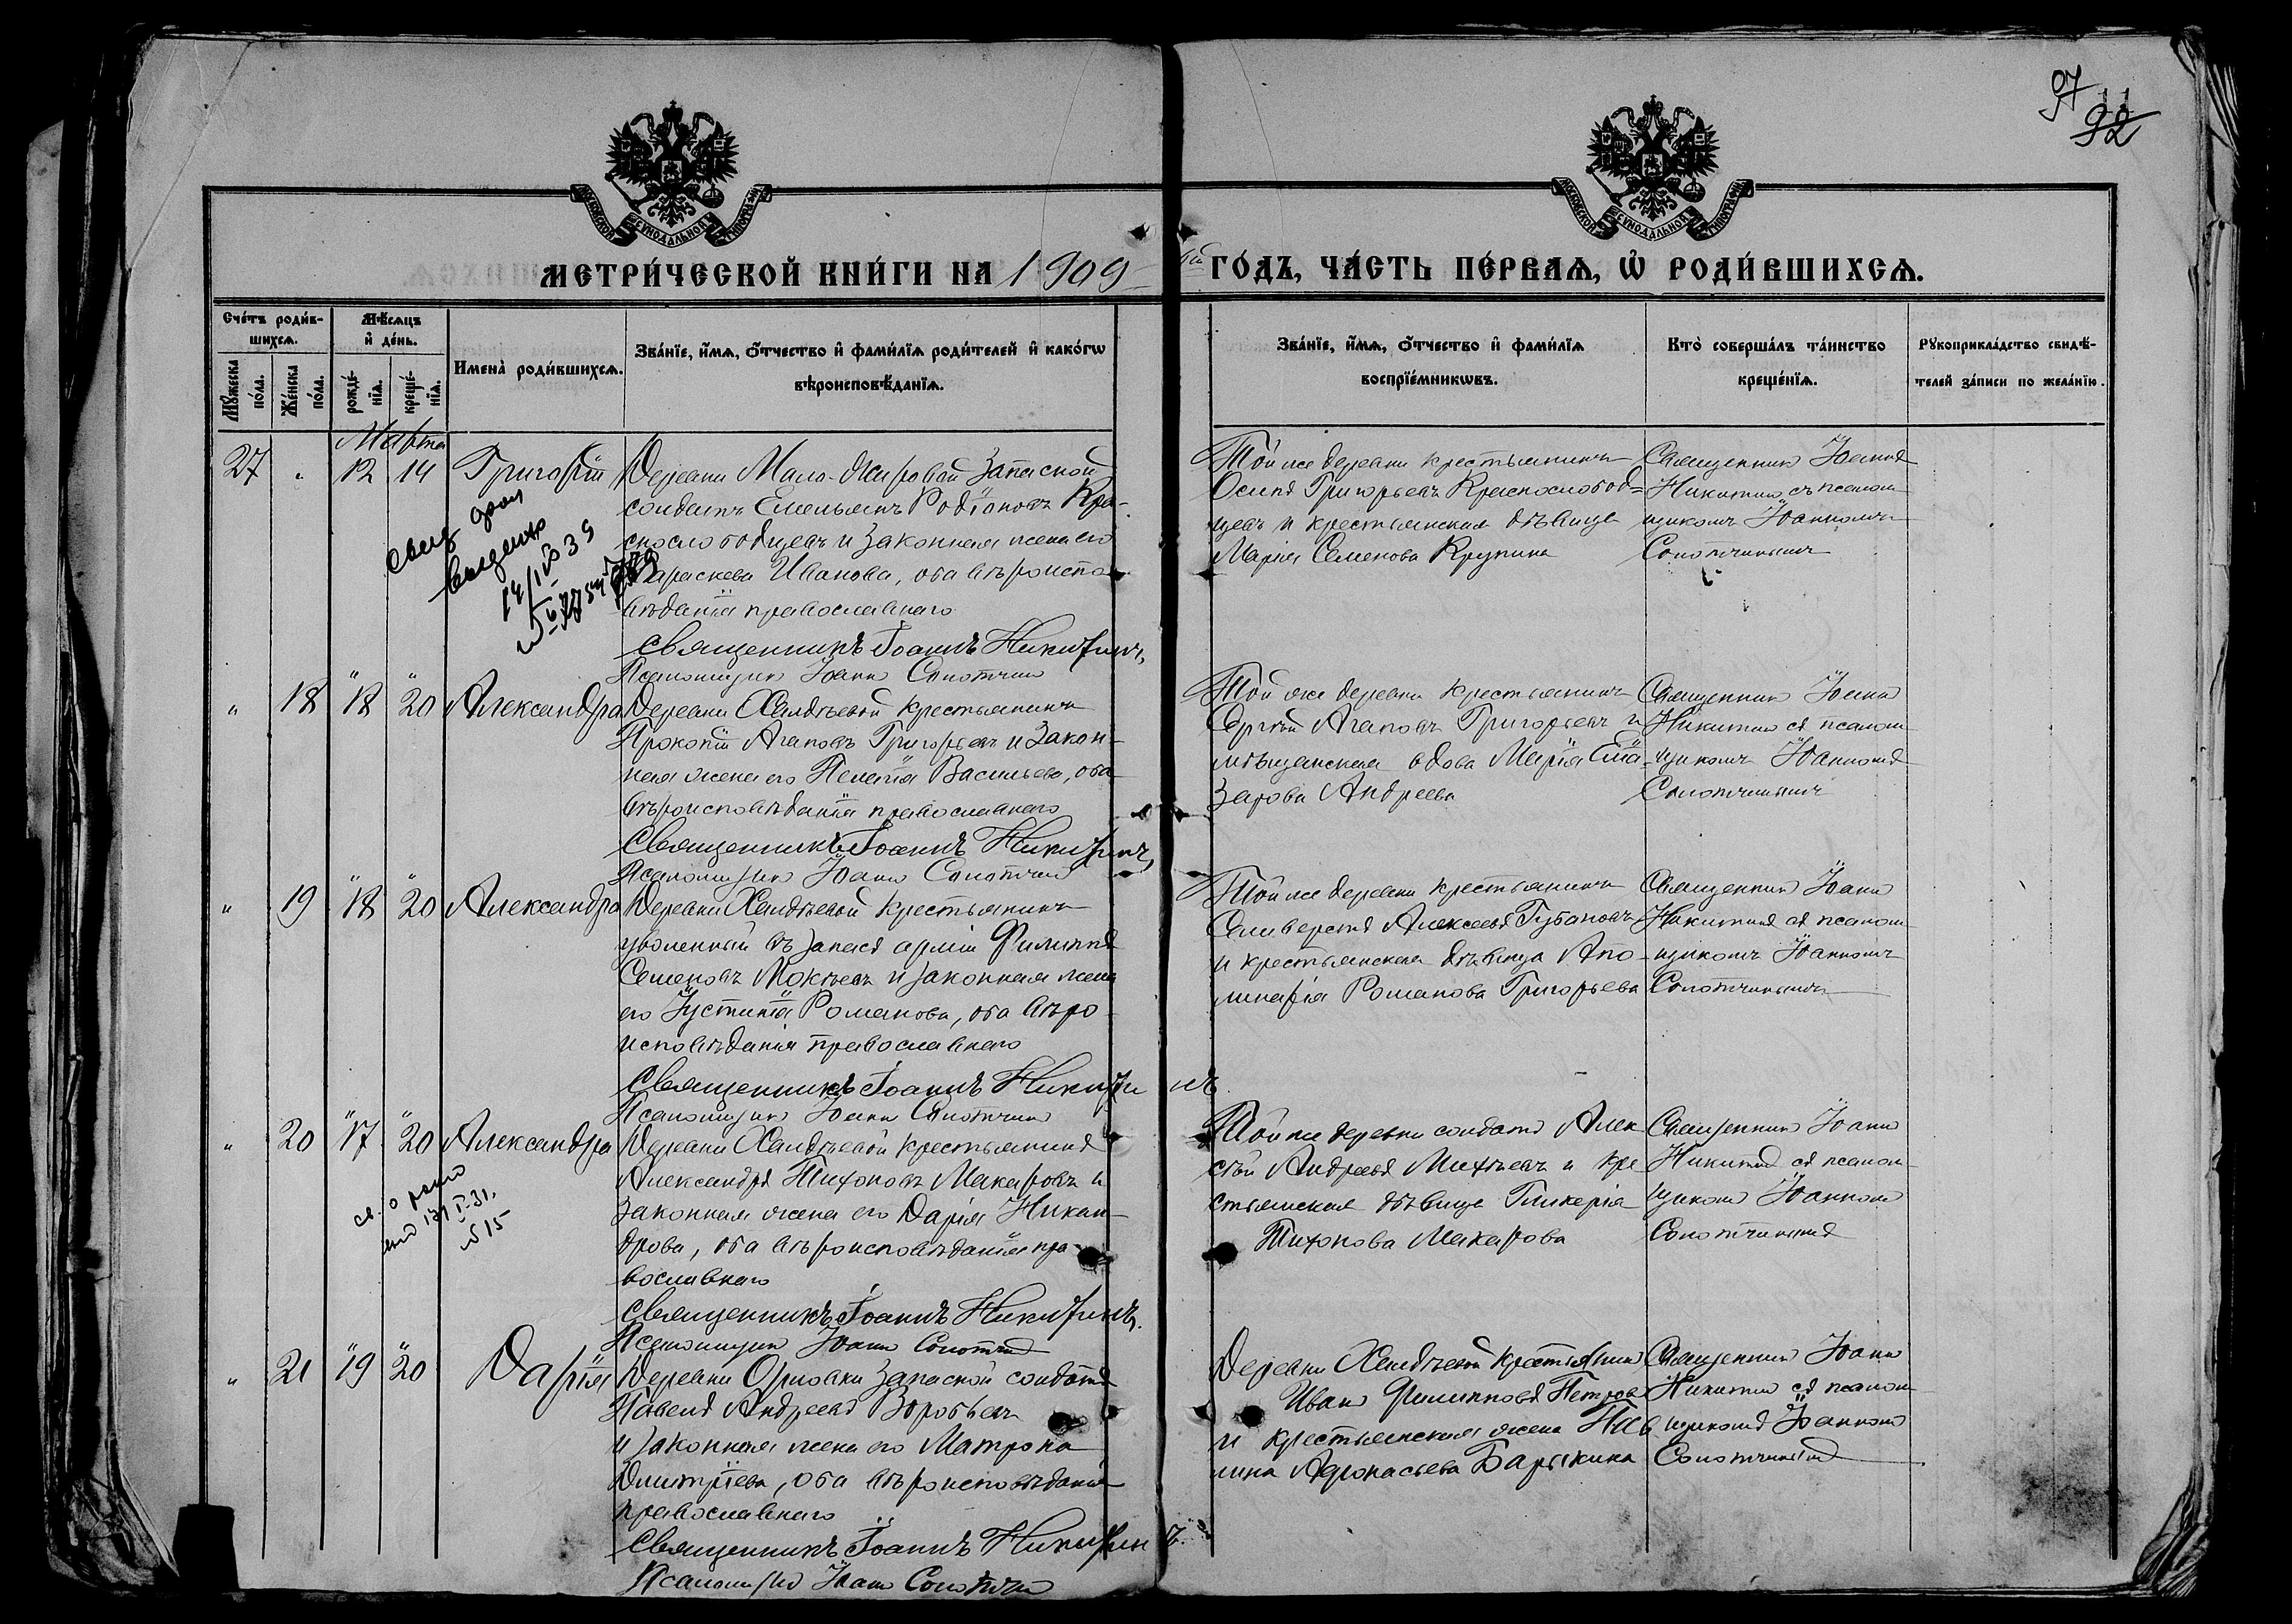 97
92
МОСКОВСКОЙ СѴНОДАЛЬНОЙ ТИПОГРАФІИ
МОСКОВСКОЙ СѴНОДАЛЬНОЙ ТИПОГРАФІИ
МЕТРИ́ЧЕСКОЙ КНИ́ГИ НА 1909
ый ГО́ДЪ, ЧА́СТЬ ПЕ́РВАѦ, Ѡ РОДИ́ВШИХСѦ.
Сче́тъ роди́в-
шихсѧ.
Мꙋжеска по́ла.
Же́нска по́ла.
Мѣ́сѧцъ
и҆ де́нь.
рожде́-нїѧ.
креще́-нїѧ.
Имена̀ роди́вшихсѧ.
Зва́нїе, и҆́мѧ, ѻ҆́тчество и҆ фами́лїѧ роди́телей и҆ како́гѡ
вѣроисповѣ́данїѧ.
Зва́нїе, и҆́мѧ, ѻ҆́тчество и҆ фами́лїѧ
воспрїе́мникѡвъ.
Кто̀ соверша́лъ та́инство
креще́нїѧ.
Рꙋкоприкла́дство свидѣ́-
телей за́писи по жела́нїю.
Марта
27 " 12 14 Григорій
Деревни Мало-Жировой запасной
солдатъ Емельянъ Родіоновъ Кра-
снослободцевъ и законная жена его
Параскева Иванова, оба вѣроиспо-
вѣданія православнаго
Священникъ Іоаннъ Никитинъ,
Псаломщикъ Іоаннъ
Той же деревни крестьянинъ
Осипъ Григорьевъ Краснослобод=
цевъ и крестьянская дѣвица
Марія Семенова Крупина
Священникъ Іоаннъ
Никитинъ съ псалом
щикомъ Іоанномъ
" 18 18 20 Александра
Деревни Халдѣевой крестьянинъ
Прокопій Агаповъ Григорьевъ и закон-
ная жена его Пелагія Васильева, оба
вѣроисповѣданія православнаго
Священникъ Іоаннъ Никитинъ,
Псаломщикъ Іоаннъ
Той же деревни крестьянинъ
Сергѣй Агаповъ Григорьевъ и
мѣщанская вдова Марія Ела-
зарова Андреева
Священникъ Іоаннъ
Никитинъ съ псалом
щикомъ Іоанномъ
" 19 18 20 Александра
Деревни Халдѣевой крестьянинъ
уволенный въ запасъ арміи Филиппъ
Семеновъ Мокѣевъ и законная жена
его Іустинія Романова, оба вѣро
исповѣданія православнаго
Священникъ Іоаннъ Никитинъ
Псаломщикъ Іоаннъ
Той же деревни крестьянинъ
Селиверстъ Алексеевъ Губановъ
и крестьянская дѣвица Апо-
линарія Романова Григорьева
Священникъ Іоаннъ
Никитинъ съ псалом
щикомъ Іоанномъ
" 20 17 20 Александра
Деревни Халдѣевой крестьянинъ
Александръ Тихоновъ Макаровъ и
законная жена его Дарія Никан-
дрова, оба вѣроисповѣданія пра-
вославнаго
Священникъ Іоаннъ Никитинъ.
Псаломщикъ Іоаннъ
Той же деревни солдатъ Алек
сѣй Андреевъ Михѣевъ и кре
стьянская дѣвица Гликерія
Тихонова Макарова
Священникъ Іоаннъ
Никитинъ съ псалом
щикомъ Іоанномъ
" 21 19 20 Дарія
Деревни Орловки запасной солдатъ
Павелъ Андреевъ Воробьевъ
и законная жена его Матрона
Дмитріева, оба вѣроисповѣданія
православнаго
Священникъ Іоаннъ Никитинъ.
Псаломщикъ Іоаннъ
Деревни Халдѣевой крестьянинъ
Иванъ Филипповъ Петровъ
и крестьянская жена
Афонасьева Барыкина
Священникъ Іоаннъ
Никитинъ съ псалом
щикомъ Іоанномъ